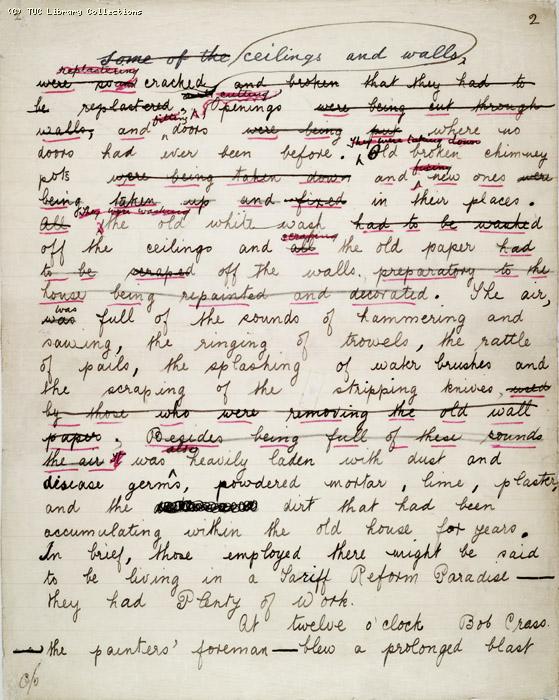 (C) TUC Library Collections
2
Some of the ceilings and walls,
replastering
were so cracked and broken that they had to
cutting
be replastered, openings were being cut through
fitting
walls, and doors were being put where no
They were taking down
doors had ever been before. Old broken chimney
fixing
pots were being taken down and new ones were
being taken up and fixed in their places.
They were washing
All the old whitewash had to be washed
scraping
off the ceilings and all the old paper had
to be scraped off the walls, preparatory to the
house being repainted and decorated. The air,
was
was full of the sounds of hammering and
sawing, the ringing of trowels, the rattle
of pails, the splashing of water brushes and
the scraping of the stripping knives used
by those who were removing the old wall
paper. Besides being full of these sounds
also
the air it was heavily laden with dust and
disease germs, powdered mortar, lime, plaster,
and the dirt that had been
accumulating within the old house for years.
In brief, those employed there might be said
to be living in a Tariff Reform Paradise —
they had Plenty of Work.
At twelve o'clock Bob Crass
— the painters' foreman — blew a prolonged blast